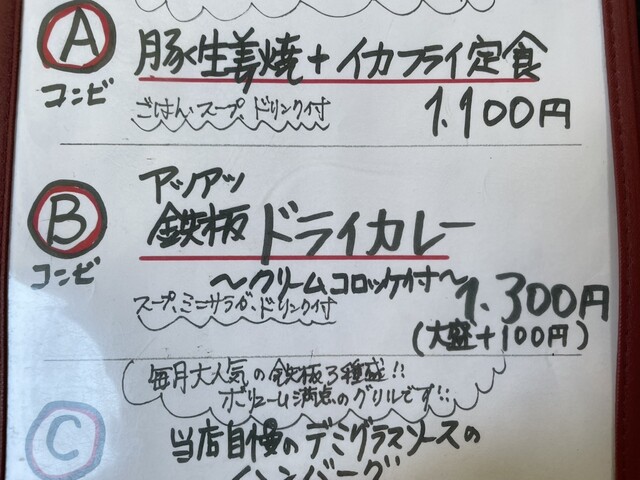 A
コンビ
豚生姜焼+イカフライ定食
ごはん、スープ、ドリンク付
1,100円
B
コンビ
アッツアツ
鉄板ドライカレー
〜クリームコロッケ付〜
スープ、ミニサラダ、ドリンク付
1,300円
(大盛+100円)
毎月大人気の鉄板3種盛!!
ボリューム満点のグリルです!!
C
当店自慢のデミグラスソースの
ハンバーグ